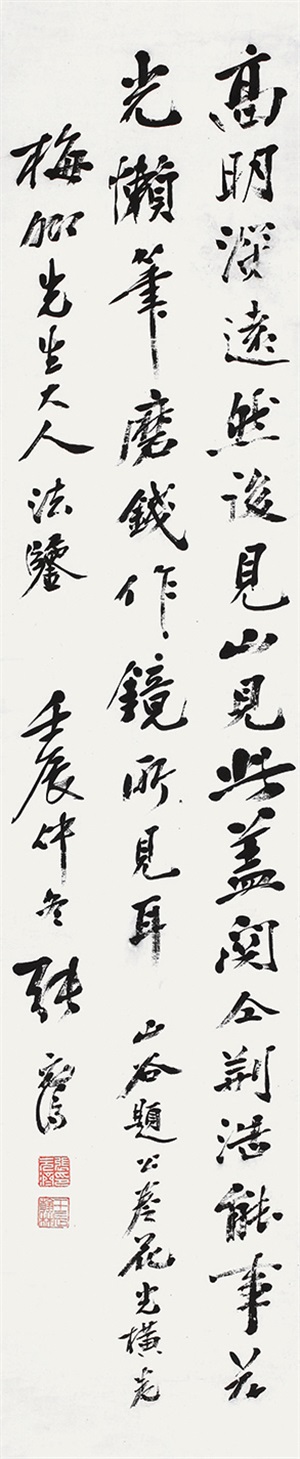 高明深遠然後見山見此蓋関仝荊浩能事花
光懶筆磨錢作鏡所見耳 山谷題公卷花光橫卷
梅卿先生大人法鑒 壬辰仲冬 張元濟